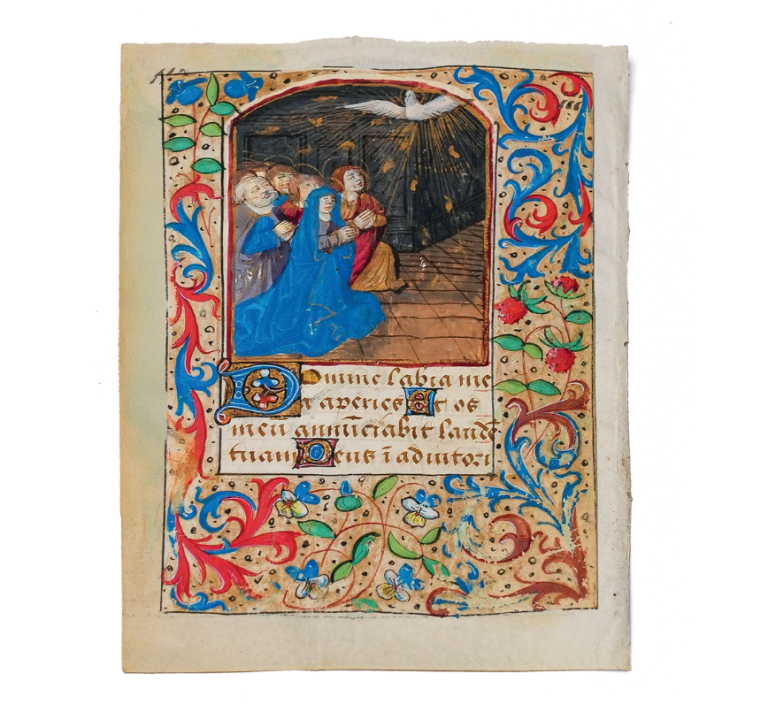 Domine labia me
a aperies Et os
meū annūciabit laudē
tuam Deus ī adiutori